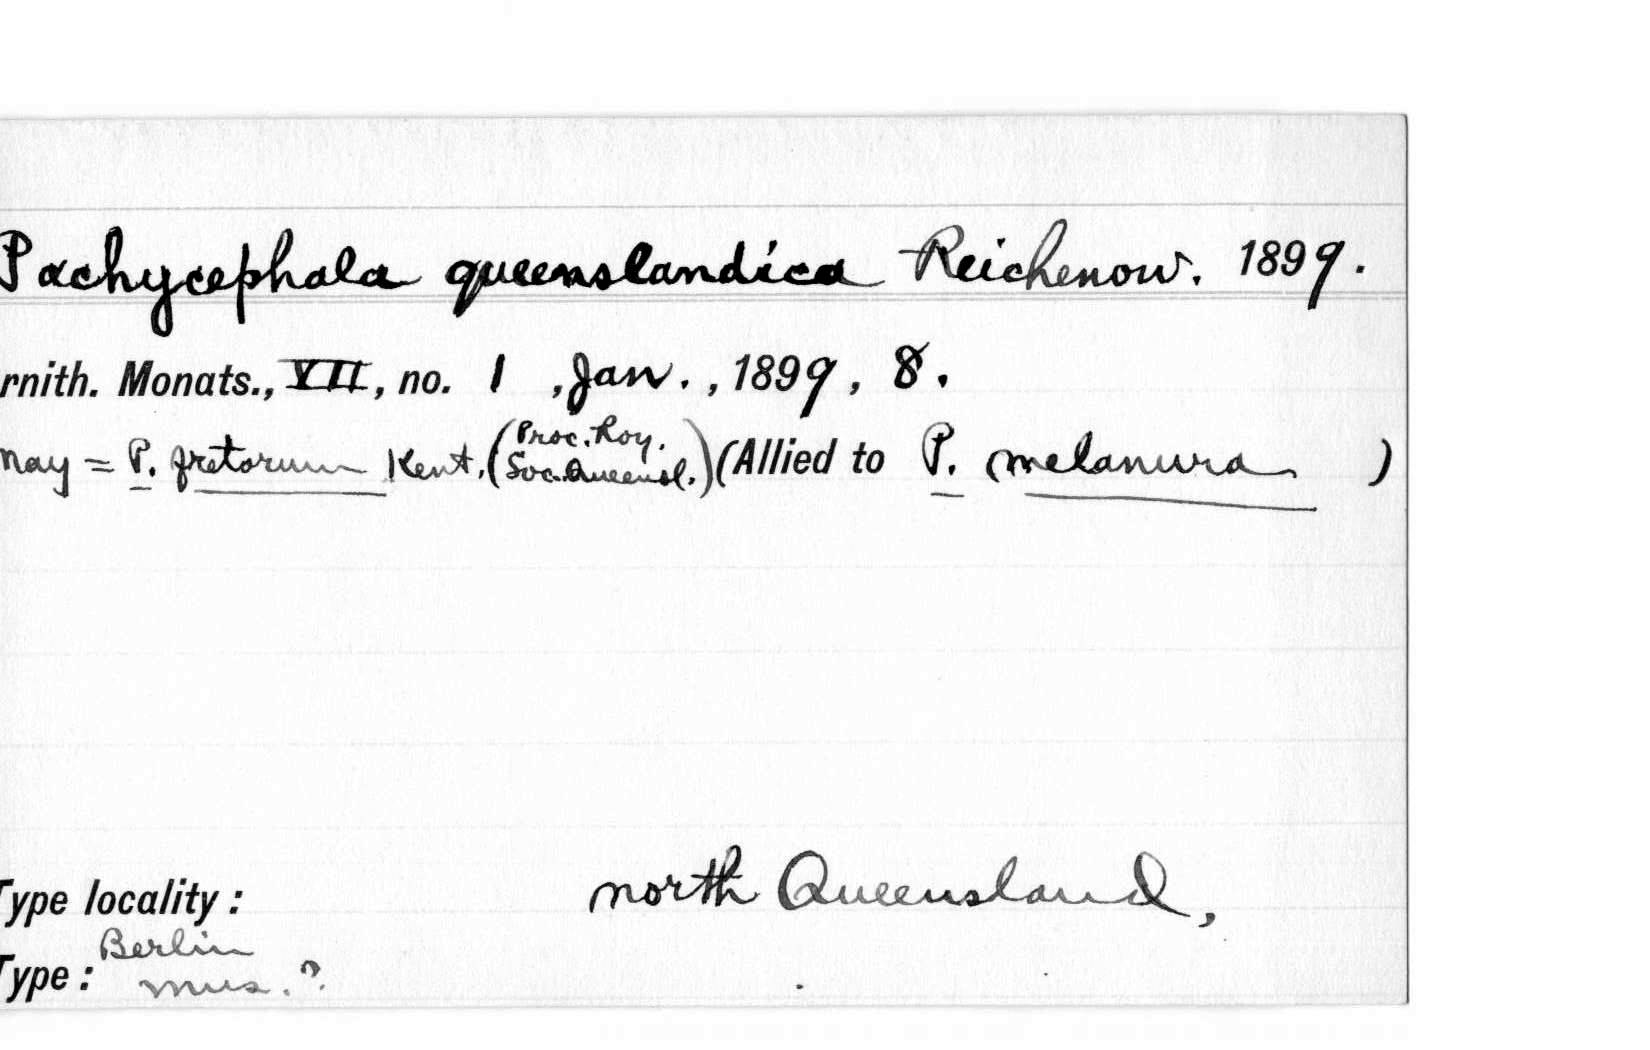 Pachycephala queenslandica Reichenow. 1899.
rnith. Monats., VII, no. 1 , Jan. , 1899, 8.
may = P. fretorum Kent. (Proc. Roy. Soc. Queensl.) (Allied to P. melanura )
Type locality : north Queensland,
Type : Berlin mus. ?